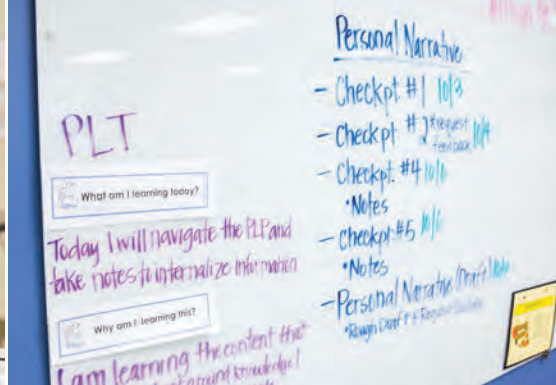 PLT
What am I learning today?
Today I will navigate the PLP and
take notes to internalize information
Why am I learning this?
I am learning the content that
around knowledge I
Personal Narrative
- Checkpt. #1 10/3
- Checkpt #2 *request
feedback 10/4
- Checkpt. #4 10/6
•Notes
- Checkpt #5 10/6
•Notes
- Personal Narrative (Draft)
•Rough Draft & Request